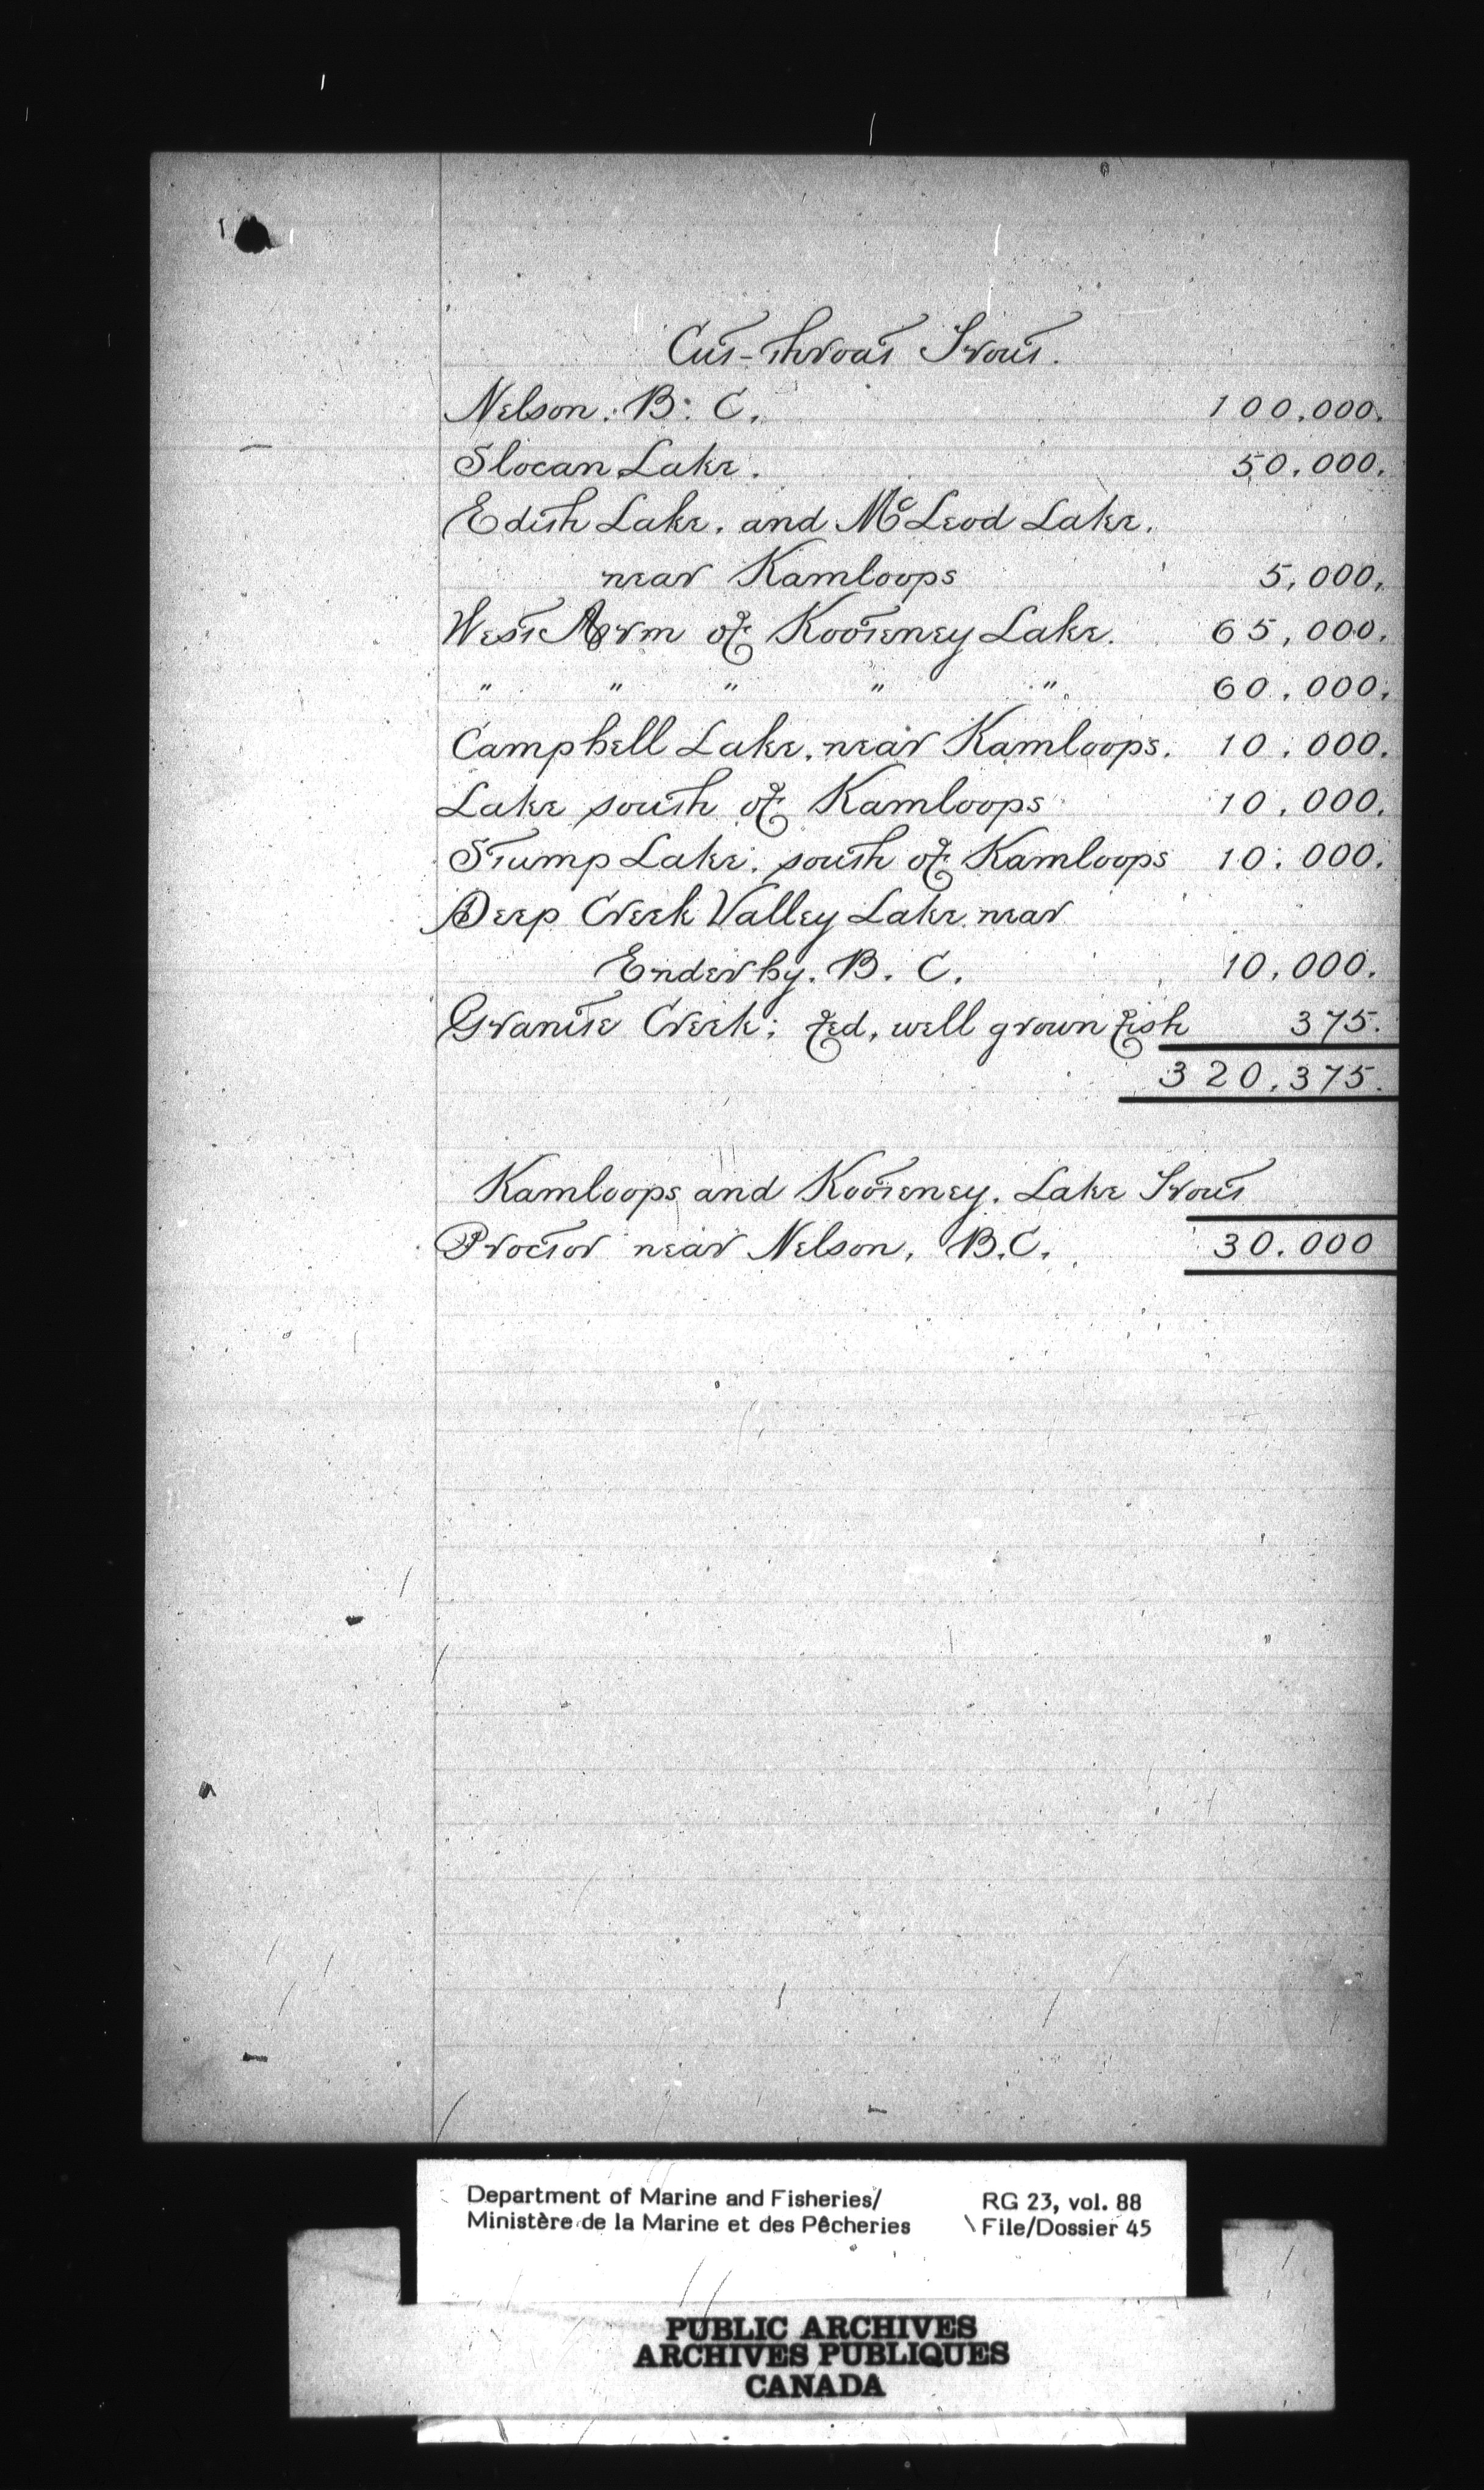 Cut-throat Trout.
Nelson. B. C. 100.000.
Slocan Lake. 50.000.
Edith Lake. and McLeod Lake.
near Kamloops 5,000.
West Arm of Kooteney Lake. 65,000.
" " " " " 60.000.
Campbell Lake, near Kamloops. 10.000.
Lake south of Kamloops 10.000.
Stump Lake. south of Kamloops 10.000.
Deep Creek Valley Lake near
Enderby. B. C. 10.000.
Granite Creek; fed, well grown fish 375.
320.375.
Kamloops and Kooteney. Lake Trout
Proctor near Nelson, B.C. 30.000
Department of Marine and Fisheries/ RG 23, vol. 88
Ministère de la Marine et des Pêcheries File/Dossier 45
PUBLIC ARCHIVES
ARCHIVES PUBLIQUES
CANADA